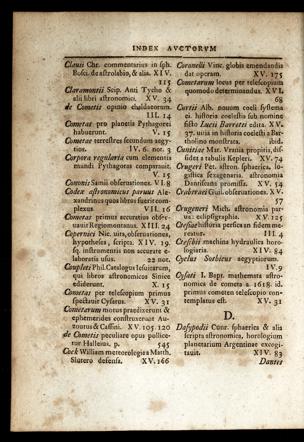 INDEX AVCTORVM
Clauii Chr. commentarius in sph.
Bosci. de astrolabio, & alia. XIV.
115
Claramontii Scip. Anti Tycho &
alii libri astronomici. XV. 34
de Cometis opinio chaldaeorum.
III. 14
Cometas pro planetis Pythagorei
habuerunt. V. 15
Cometae terrestres secundum aegy-
tios. IV. 6. not. 3
Corpora regularia cum elementis
mundi Pythagoras comparauit
V. 15
Cononis Samii obseruationes. VI. 8
Codex astronomicus paruus Ale-
xandrinus quos libros fuerit com-
plexus VII. 16
Cometas primus accuratius obser-
uauit Regiomontanus. XIII. 24
Copernici Nic. uita, obseruationes,
hypotheses, scripta. XIV. 19.
sq. instrumentis non accurate e-
laboratis usus. 22 not.
Couplets Phil. Catalogus Iesuitarum,
qui libros astronomicos Sinice
ediderunt. X. 15
Cometas per telescopium primus
spectauit Cysatus. XV. 31
Cometarum motus praedixerunt &
ephemerides construxerunt Au-
zoutus & Cassini. XV. 105 120
de Cometis peculiare opus pollice-
tur Halleius. p. 545
Cock William meteorologica Matth.
Slutero defensa. XV. 166
Coronelli Vinc. globis emendandis
dat operam. XV. 175
Cometarum locus per telescopium
quomodo determinandus. XVI.
68
Curtii Alb. nouum coeli systema
ei. historia coelestis sub nomine
ficto Lucii Barretti edita. XV.
37. uiria in historia coelesti a Bar-
tholino monstrata. ibid.
Cunitiae Mar. Vrania propitia, dif-
fidet a tabulis Kepleri. XV. 74
Crugeri Pet. astron. sphaerica, lo-
gistica sexagenaria. astronomia
Dantiscana promissa. XV. 54
Crabtraei Guil. obseruationes. XV.
57
Crugeneri Mich. astronomia par-
ua: eclipsigraphia. XV. 125
Ctesiae historia persica an fidem me-
reatur. III. 4
Ctesibii machina hydraulica horo-
logiaria. XIV. 84
Cyclus Sothiacus aegyptiorum.
IV. 9
Cysati I. Bapt. mathesis astro-
nomica de cometa a. 1618. id.
primus cometen telescopio con-
templatus est. XV. 31
D.
Dasypodii Conr. sphaerica & alia
scripta astronomica, horologium
planetarium Argentinae excogi-
tauit. XIV. 83
Dantes